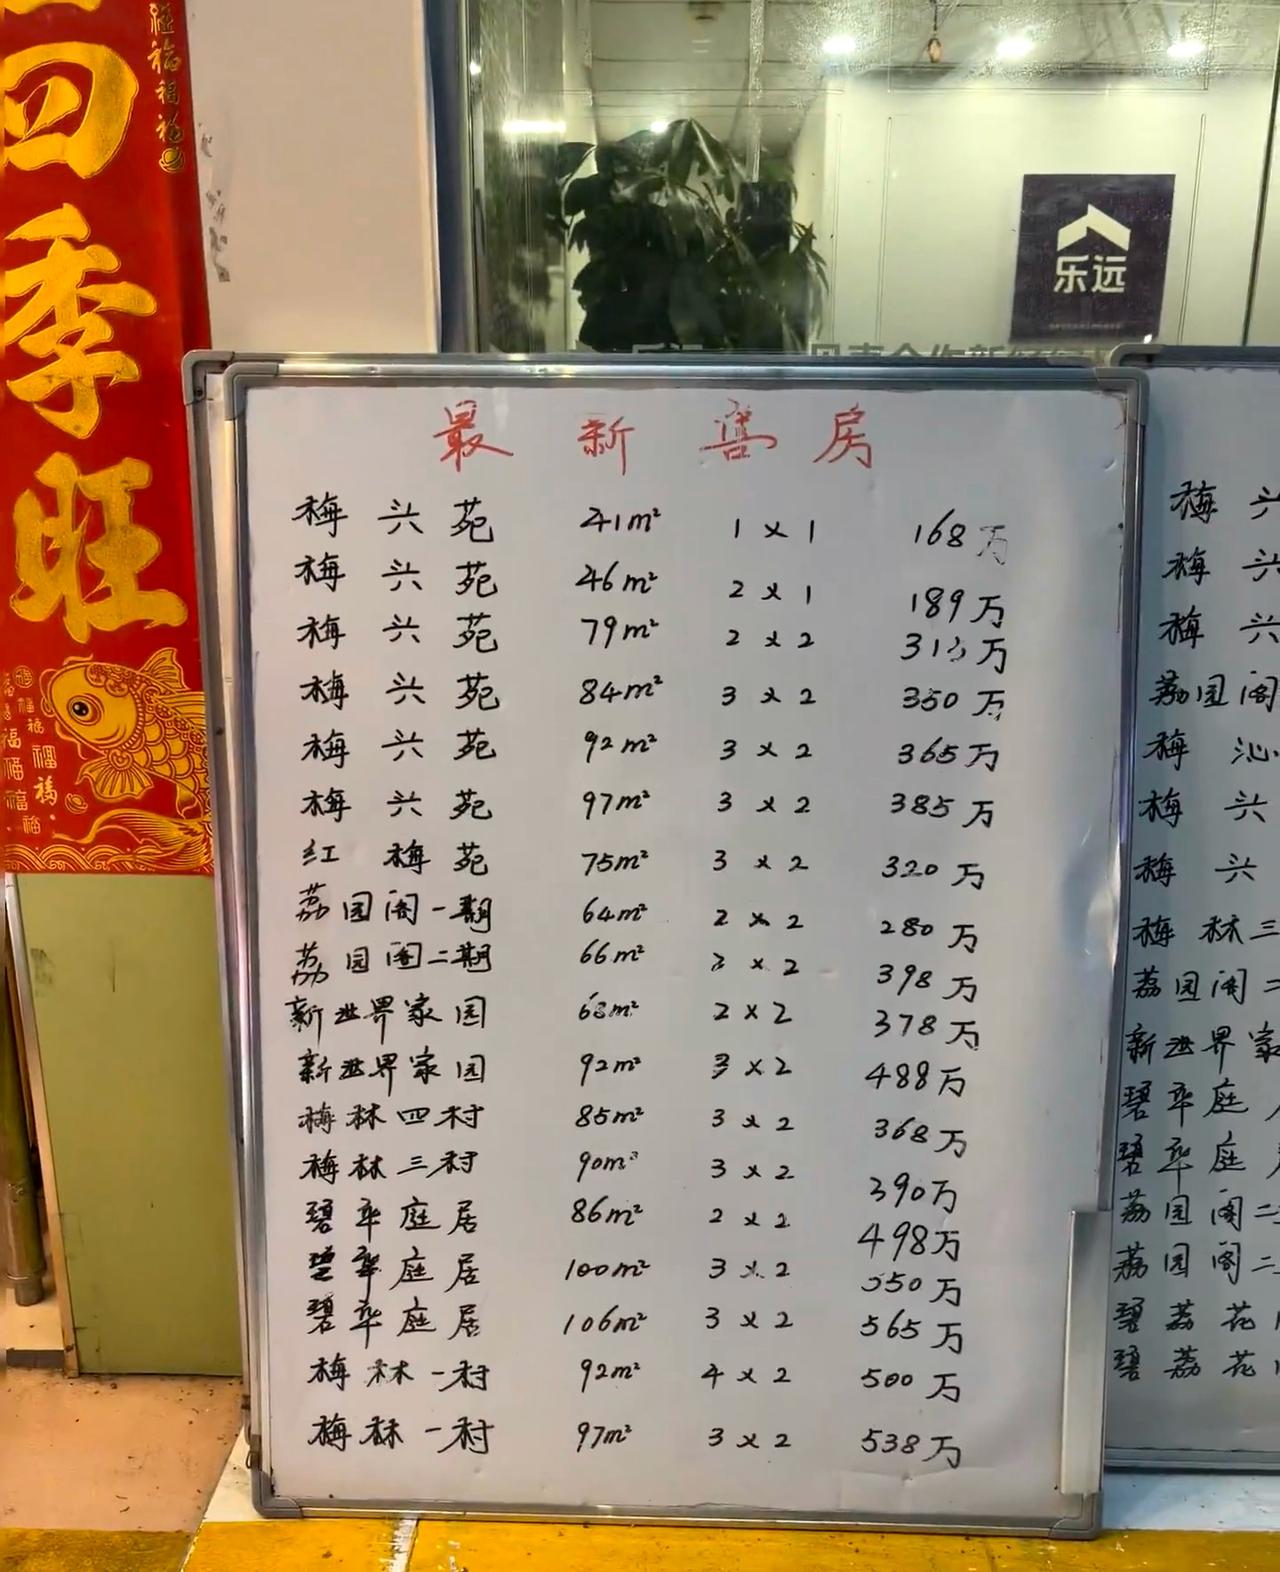 四季旺
福福福
乐远
最新售房
梅兴苑 41m² 1×1 168万
梅兴苑 46m² 2×1 189万
梅兴苑 79m² 2×2 万
梅兴苑 84m² 3×2 350万
梅兴苑 92m² 3×2 365万
梅兴苑 97m² 3×2 385万
红梅苑 75m² 3×2 320万
荔园阁一期 64m² 2×2 280万
荔园阁二期 66m² ×2 398万
新世界家园 68m² 2×2 378万
新世界家园 92m² 3×2 488万
梅林四村 85m² 3×2 368万
梅林三村 90m² 3×2 390万
碧华庭居 86m² 2×2 498万
碧华庭居 100m² 3×2 550万
碧华庭居 106m² 3×2 565万
梅林一村 92m² 4×2 500万
梅林一村 97m² 3×2 538万
梅兴
梅兴
梅兴
荔园阁
梅沁
梅兴
梅兴
梅林三
荔园阁二
新世界家
碧华庭
碧华庭
荔园阁二
荔园阁二
碧荔花
碧荔花